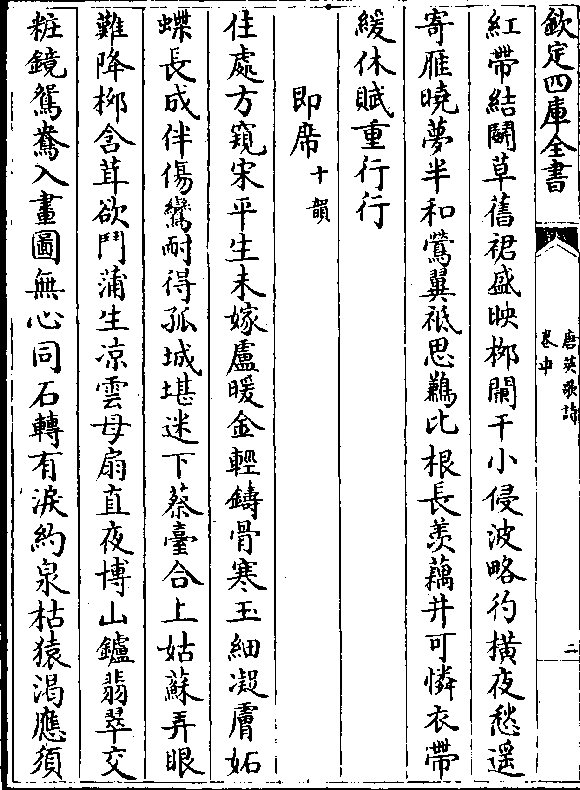 欽定四庫全書
唐英歌詩
卷中
二
紅帶結鬬草舊裙盛映栁闌干小侵波略彴横夜愁遥
寄雁曉夢半和鶯翼祗思鶼比根長羡藕并可憐衣帶
緩休賦重行行
即席十韻
住處方窺宋平生未嫁盧暖金輕鑄骨寒玉細凝膚妬
蝶長成伴傷鸞耐得孤城堪迷下蔡臺合上姑蘇弄眼
難降栁含茸欲鬥蒲生凉雲母扇直夜博山鑪翡翠交
粧鏡鴛鴦入畫圖無心同石轉有淚約泉枯猿渇應須